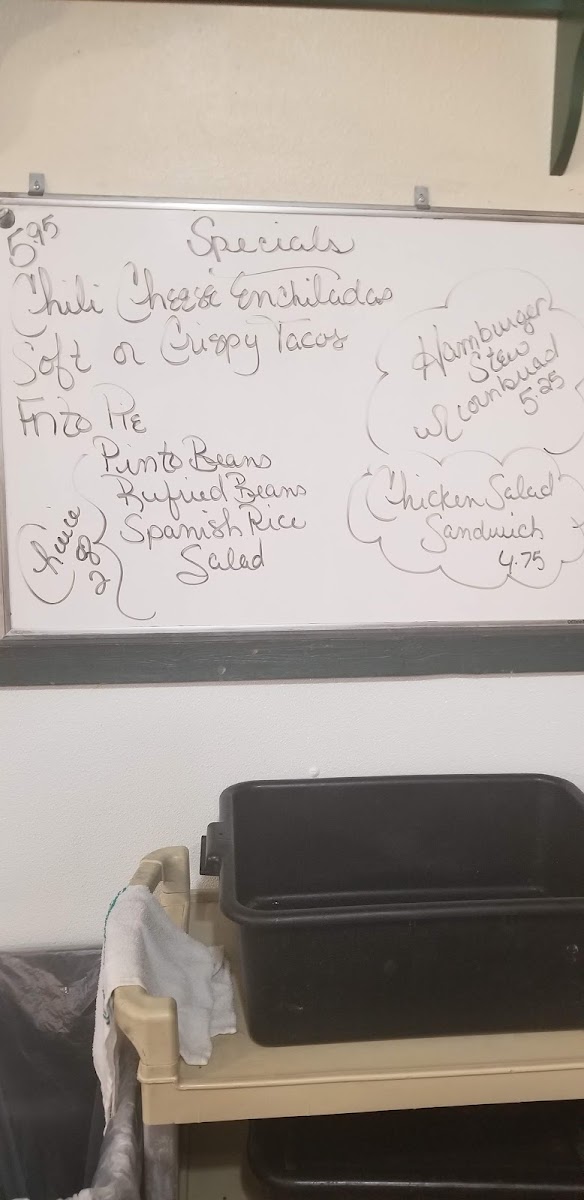 5.95
Specials
Chili Cheese Enchiladas
Soft or Crispy Tacos
Frito Pie
Choice
of
2
Pinto Beans
Rufried Beans
Spanish Rice
Salad
Hamburger
Stew
w/ cornbread
5.25
Chicken Salad
Sandwich
4.75